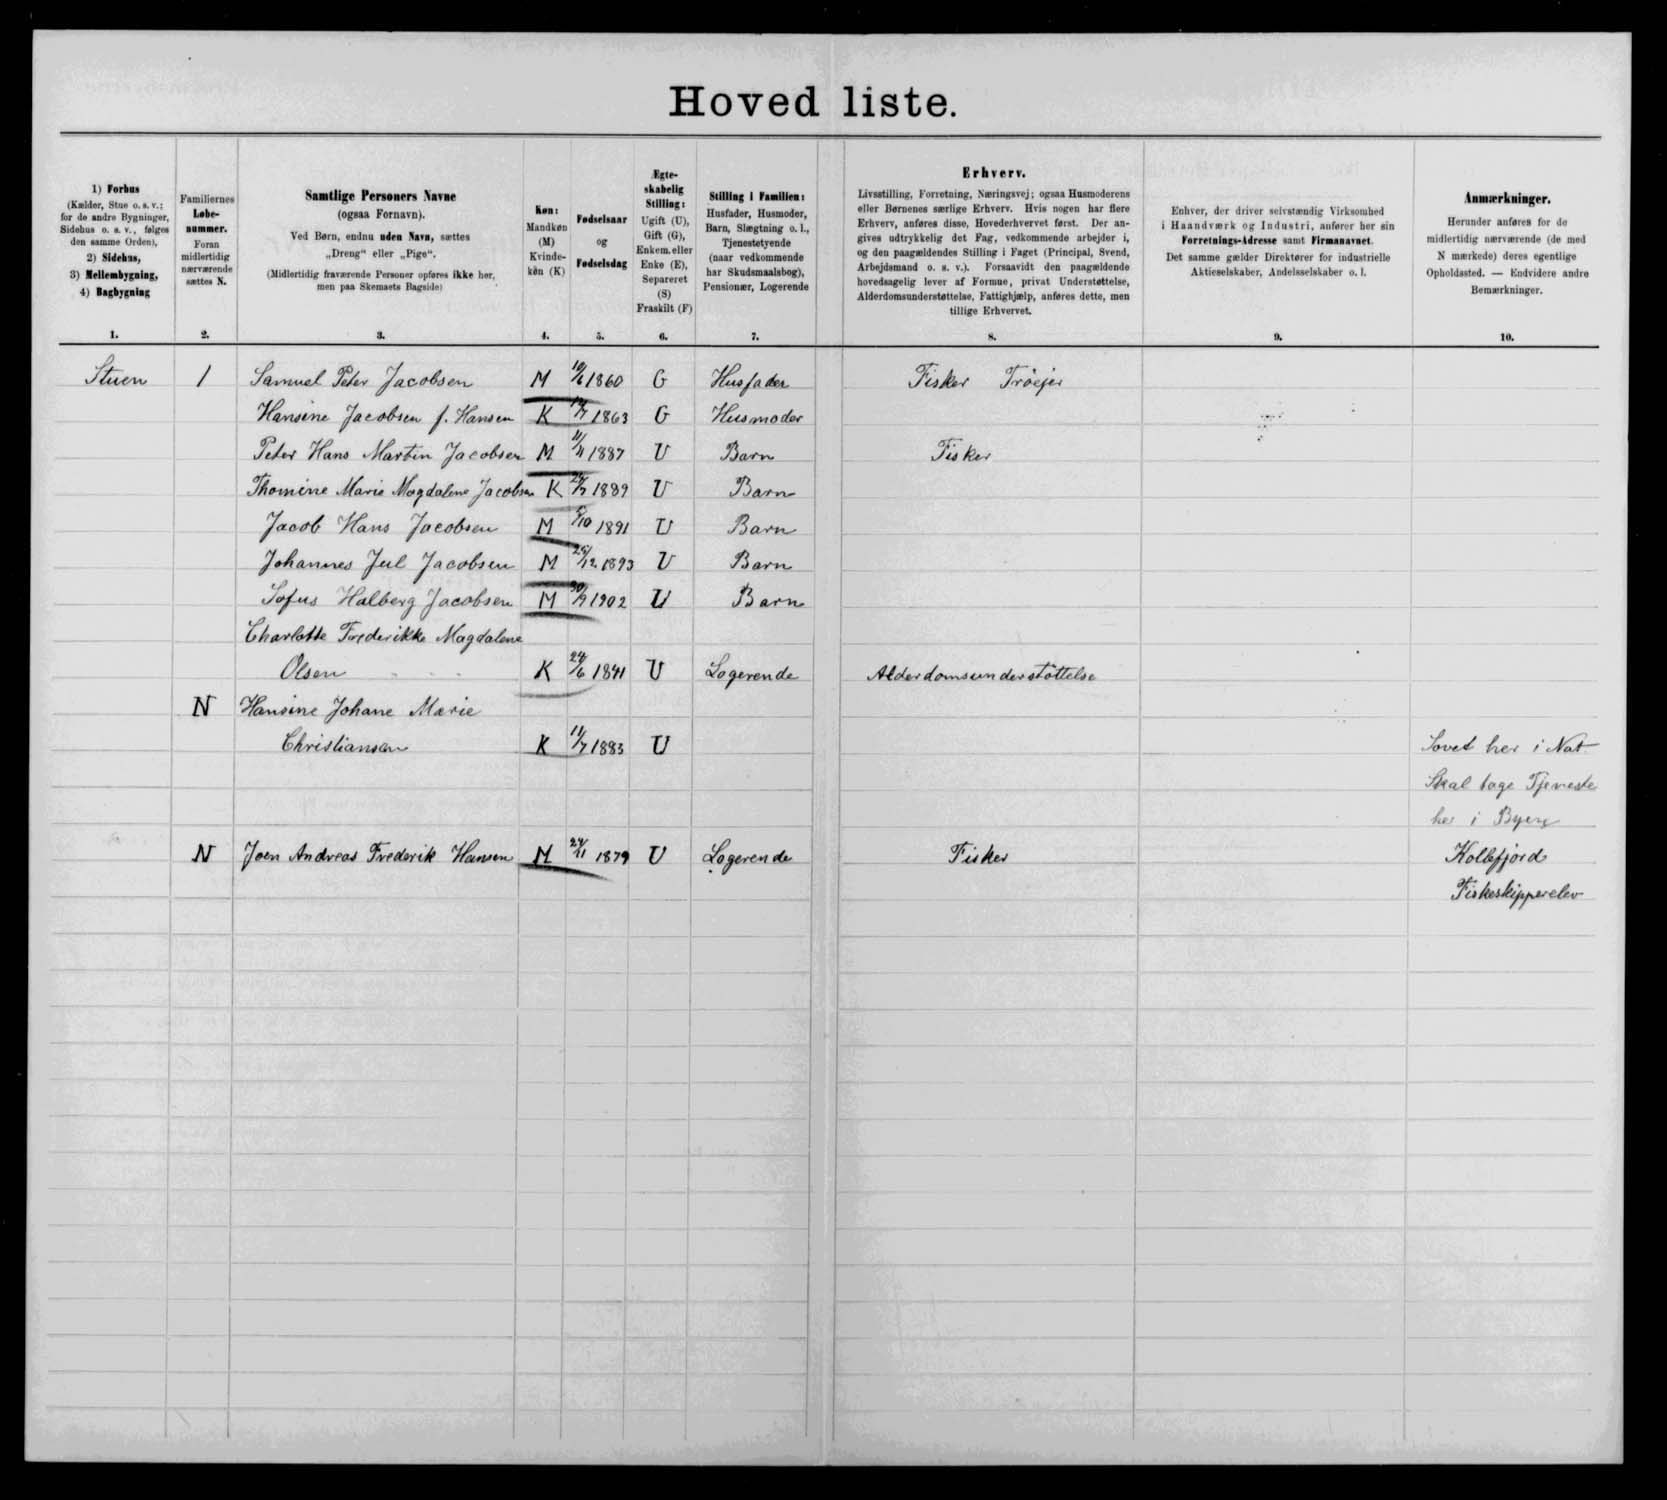 Hoved liste.
1) Forhus
(Kælder, Stue o. s. v.;
for de andre Bygninger,
Sidehus o. s. v., følges
den samme Orden),
2) Sidehus,
3) Mellembygning,
4) Bagbygning
1.
Familiernes
Løbe-
nummer.
Foran
midlertidig
nærværende
sættes N.
2.
Samtlige Personers Navne
(ogsaa Fornavn).
Ved Børn, endnu uden Navn, sættes
„Dreng“ eller „Pige“.
(Midlertidig fraværende Personer opføres ikke her,
men paa Skemaets Bagside)
3.
Køn:
Mandkøn
(M)
Kvinde-
køn (K)
4.
Fødselsaar
og
Fødselsdag
5.
Ægte-
skabelig
Stilling:
Ugift (U),
Gift (G),
Enkem. eller
Enke (E),
Separeret
(S)
Fraskilt (F)
6.
Stilling i Familien:
Husfader, Husmoder,
Barn, Slægtning o. l.,
Tjenestetyende
(naar vedkommende
har Skudsmaalsbog),
Pensionær, Logerende
7.
Erhverv.
Livsstilling, Forretning, Næringsvej; ogsaa Husmoderens
eller Børnenes særlige Erhverv. Hvis nogen har flere
Erhverv, anføres disse, Hovederhvervet først. Der an-
gives udtrykkelig det Fag, vedkommende arbejder i,
og den paagældendes Stilling i Faget (Principal, Svend,
Arbejdsmand o. s. v.). Forsaavidt den paagældende
hovedsagelig lever af Formue, privat Understøttelse,
Alderdomsunderstøttelse, Fattighjælp, anføres dette, men
tillige Erhvervet.
8.
Enhver, der driver selvstændig Virksomhed
i Haandværk og Industri, anfører her sin
Forretnings-Adresse samt Firmanavnet.
Det samme gælder Direktører for industrielle
Aktieselskaber, Andelsselskaber o. l.
9.
Anmærkninger.
Herunder anføres for de
midlertidig nærværende (de med
N mærkede) deres egentlige
Opholdssted. — Endvidere andre
Bemærkninger.
10.
Stuen 1 Samuel Peter Jacobsen M 1860 G Husfader Fisker Trøejer
Hansine Jacobsen f. Hansen K 1863 G Husmoder
Peter Hans Martin Jacobsen M 11/4 1887 U Barn Fisker
Thomine Marie Magdalene Jacobsen K 1889 U Barn
Jacob Hans Jacobsen M 1891 U Barn
Johannes Jul Jacobsen M 25/12 1893 U Barn
Sofus Halberg Jacobsen M 1902 U Barn
Charlotte Frederikke Magdalene
Olsen K 24/6 1841 U Logerende Alderdomsunderstøttelse
N Hansine Johane Marie
Christiansen K 11/7 1883 U Sovet her i Nat
Skal tage Tjeneste
her i Byen
N Joen Andreas Frederik Hansen M 24/11 1879 U Logerende Fisker Kollefjord
Fiskeskipperelev